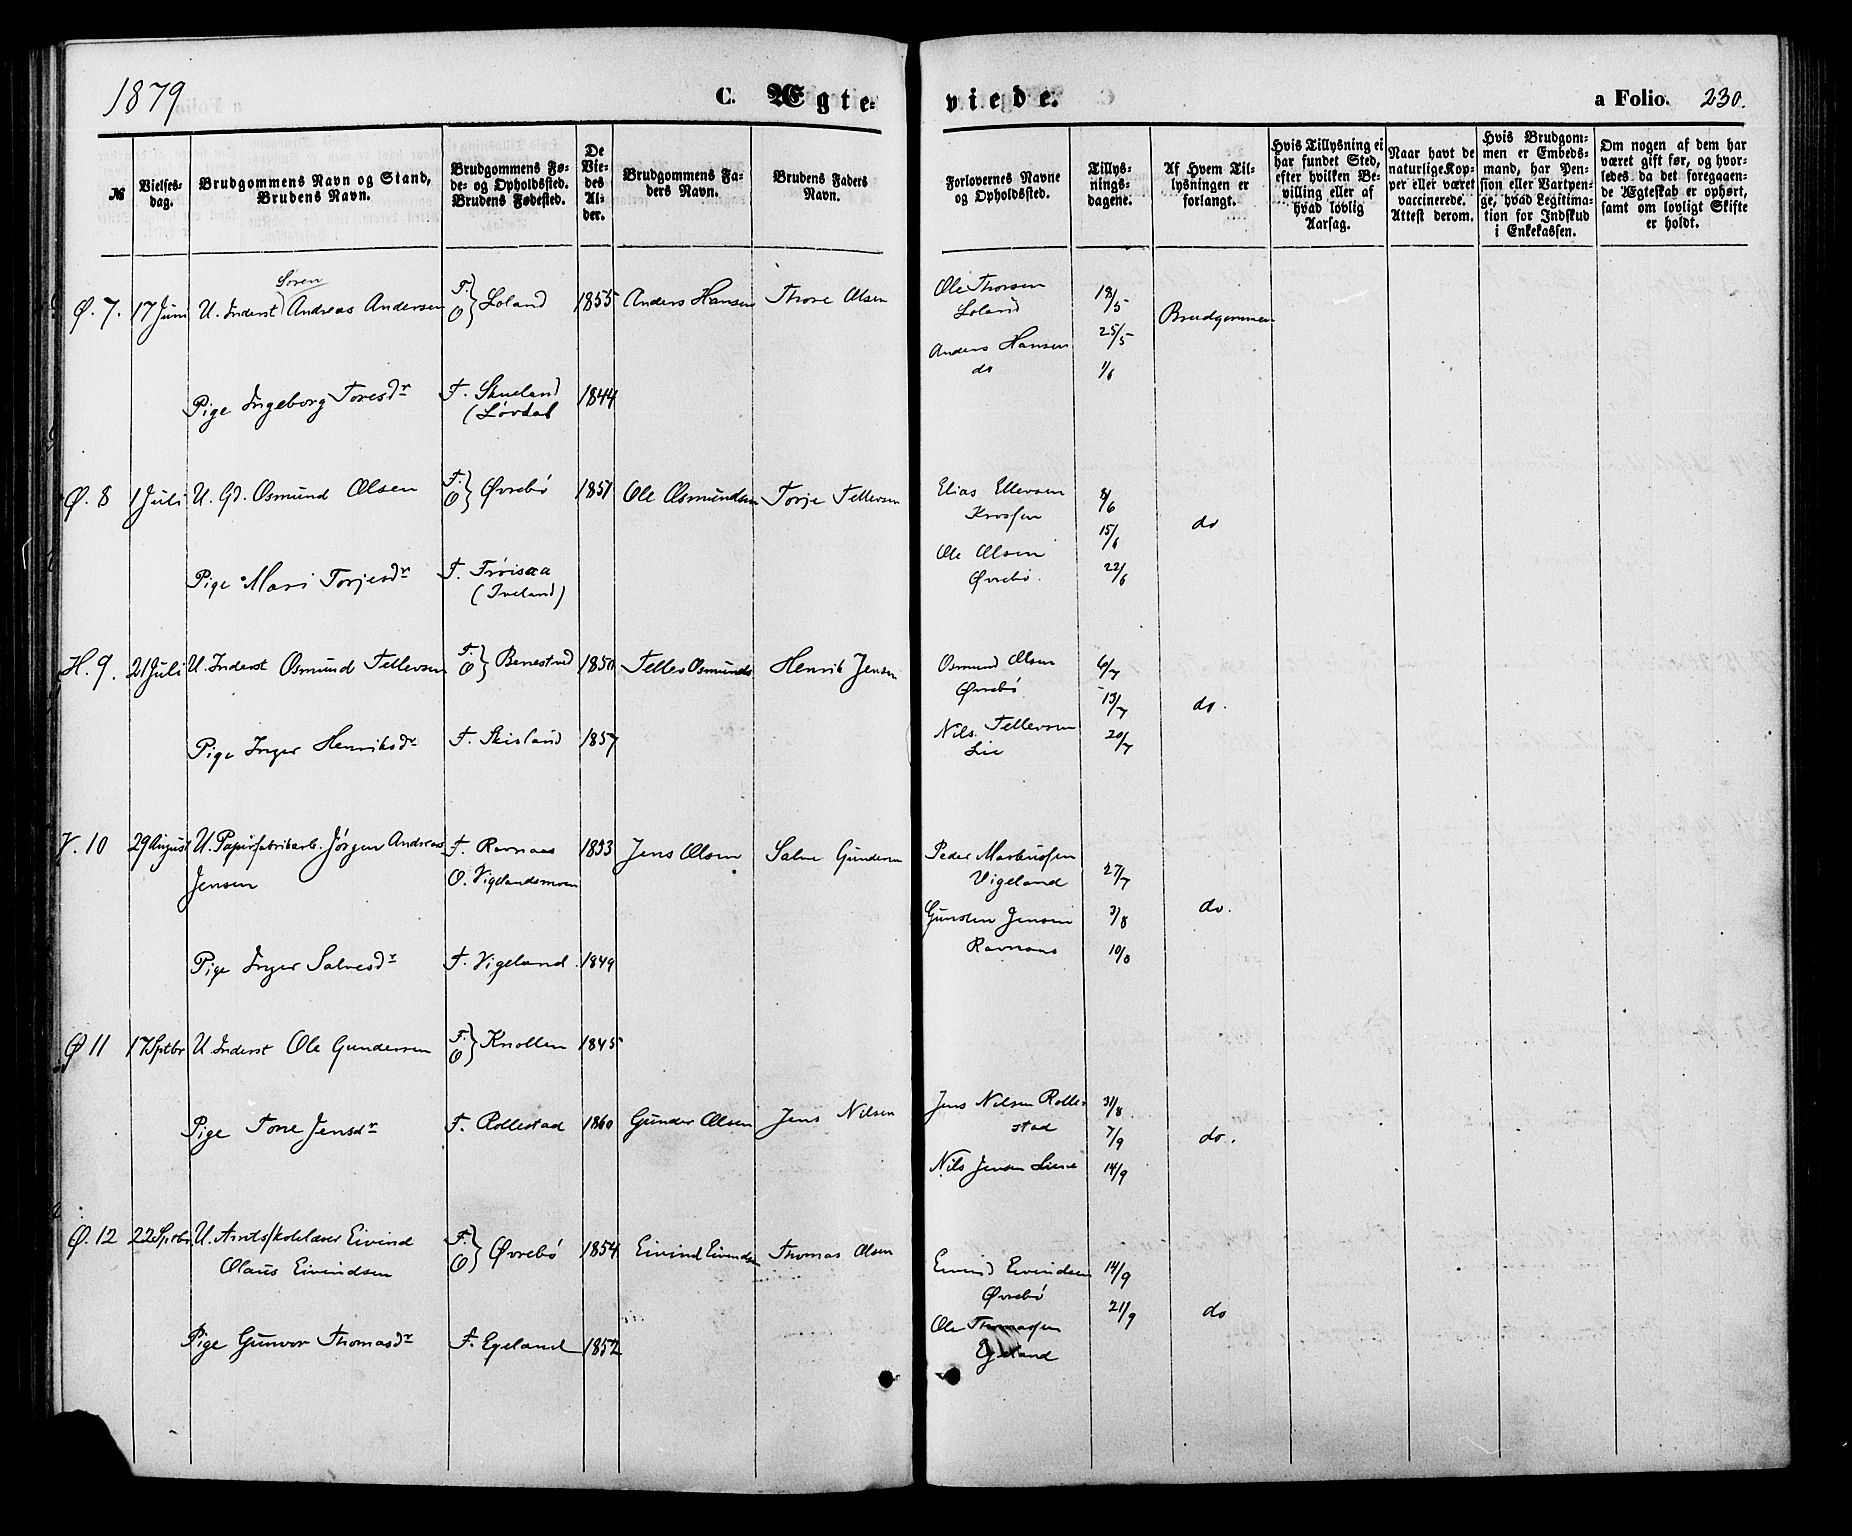 1879
C. Ægte-
viede.
a Folio. 230.
№
Vielses-
dag.
Brudgommens Navn og Stand,
Brudens Navn.
Brudgommens Fø-
de- og Opholdssted.
Brudens Fødested.
De
Vie-
des
Al-
der.
Brudgommens Fa-
ders Navn.
Brudens Faders
Navn.
Forlovernes Navne
og Opholdssted.
Tillys-
nings-
dagene.
Af Hvem Til-
lysningen er
forlangt.
Hvis Tillysning ei
har fundet Sted,
efter hvilken Be-
villing eller af
hvad lovlig
Aarsag.
Naar havt de
naturlige Kop-
per eller været
vaccinerede.
Attest derom.
Hvis Brudgom-
men er Embeds-
mand, har Pen-
sion eller Vartpen-
ge, hvad Legitima-
tion for Indskud
i Enkekassen.
Om nogen af dem har
været gift før, og hvor-
ledes da det foregaaen-
de Ægteskab er ophørt,
samt om lovligt Skifte
er holdt.
Søren
Ø. 7. 17 Juni U. Inderst Andreas Andersen F. O } Loland 1855 Anders Hansen Thore Olsen
Ole Thorsen 18/5
Loland
25/5 Brudgommen
Anders Hansen
do 1/6
Pige Ingeborg Toresdr F. Skueland 1844
(Løvdal
Ø. 8 1 Juli U. Gd. Osmund Olsen F. O } Øvrebø 1851 Ole Osmundsen Torje Tellevsen
Elias Ellevsen 8/6
Krossen
15/6 do
Ole Olsen
Øvrebø. 22/6
Pige Mari Torjesdr F. Frøisaa
(Iveland)
H. 9. 21 Juli U. Inderst Osmund Tellevsen F. O } Benestad 1850 Tellev Osmunds Henrik Jensen
Osmund Olsen 6/7
Øvrebø
13/7 do.
Nils Tellevsen
Lie 20/7
Pige Inger Henriksdr F. Skisland 1857
V. 10 29 August U. Papirfabrikarb. Jørgen Andreas F. Ravnaas 1853 Jens Olsen Salve Gundersen
Jensen O. Vigelandsmoen
Peder Markussen
Vigeland 27/7
do.
Gunsten Jensen 3/8
Ravnaas 10/8
Pige Inger Salvesdr F. Vigeland 1849
Ø 11 17 Sptbr U. Inderst Ole Gundersen F. O } Knollen 1845
Pige Tone Jensdr F. Rollestad 1860 Gunder Olsen Jens Nilsen
Jens Nilsen Rolle- 31/8
stad 7/9 do.
Nils Jensen 14/9
Ø. 12 22 Sptbr. U. Amtsskolelærer Eivind F. O } Øvrebø 1854 Eivind Eivindsen Thomas Olsen
Olaus Eivindsen
Eivind Eivindsen 14/9
Øvrebø
21/9 do
Ole Thomassen
Egeland
Pige Gunvor Thomasdr F. Egeland 1852